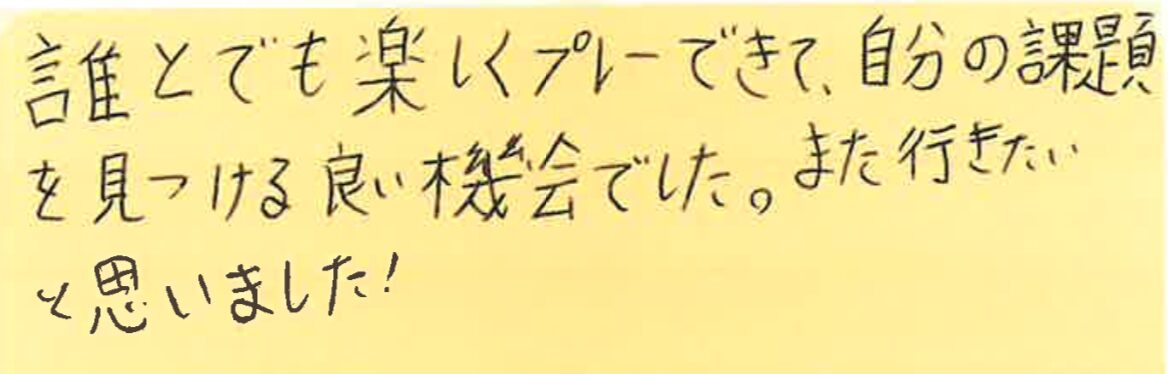 誰とでも楽しくプレーできて、自分の課題
を見つける良い機会でした。また行きたい
と思いました!